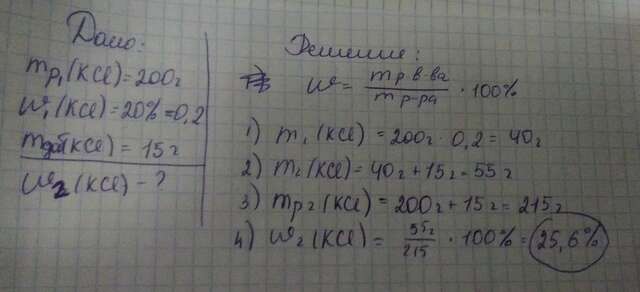 Дано:
mp₁(KCl)=200г
ω₁(KCl)=20%=0,2
mдоб(KCl)=15г
ω₂(KCl)-?
Решение:
ω= mр в-ва / m р-ра · 100%
1) m₁(KCl)=200г·0,2=40г
2) m₂(KCl)=40г+15г=55г
3) mр₂(KCl)=200г+15г=215г
4) ω₂(KCl)= 55г/215 ·100%=25,6%